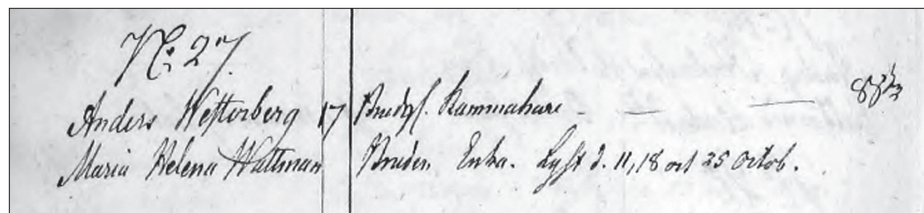 No: 27.
Anders Westerberg 17 Brudgl. Kammakare - — —
Maria Helena Wattman Bruden Enka. Lyst d. 11, 18 oct 25 Octob.